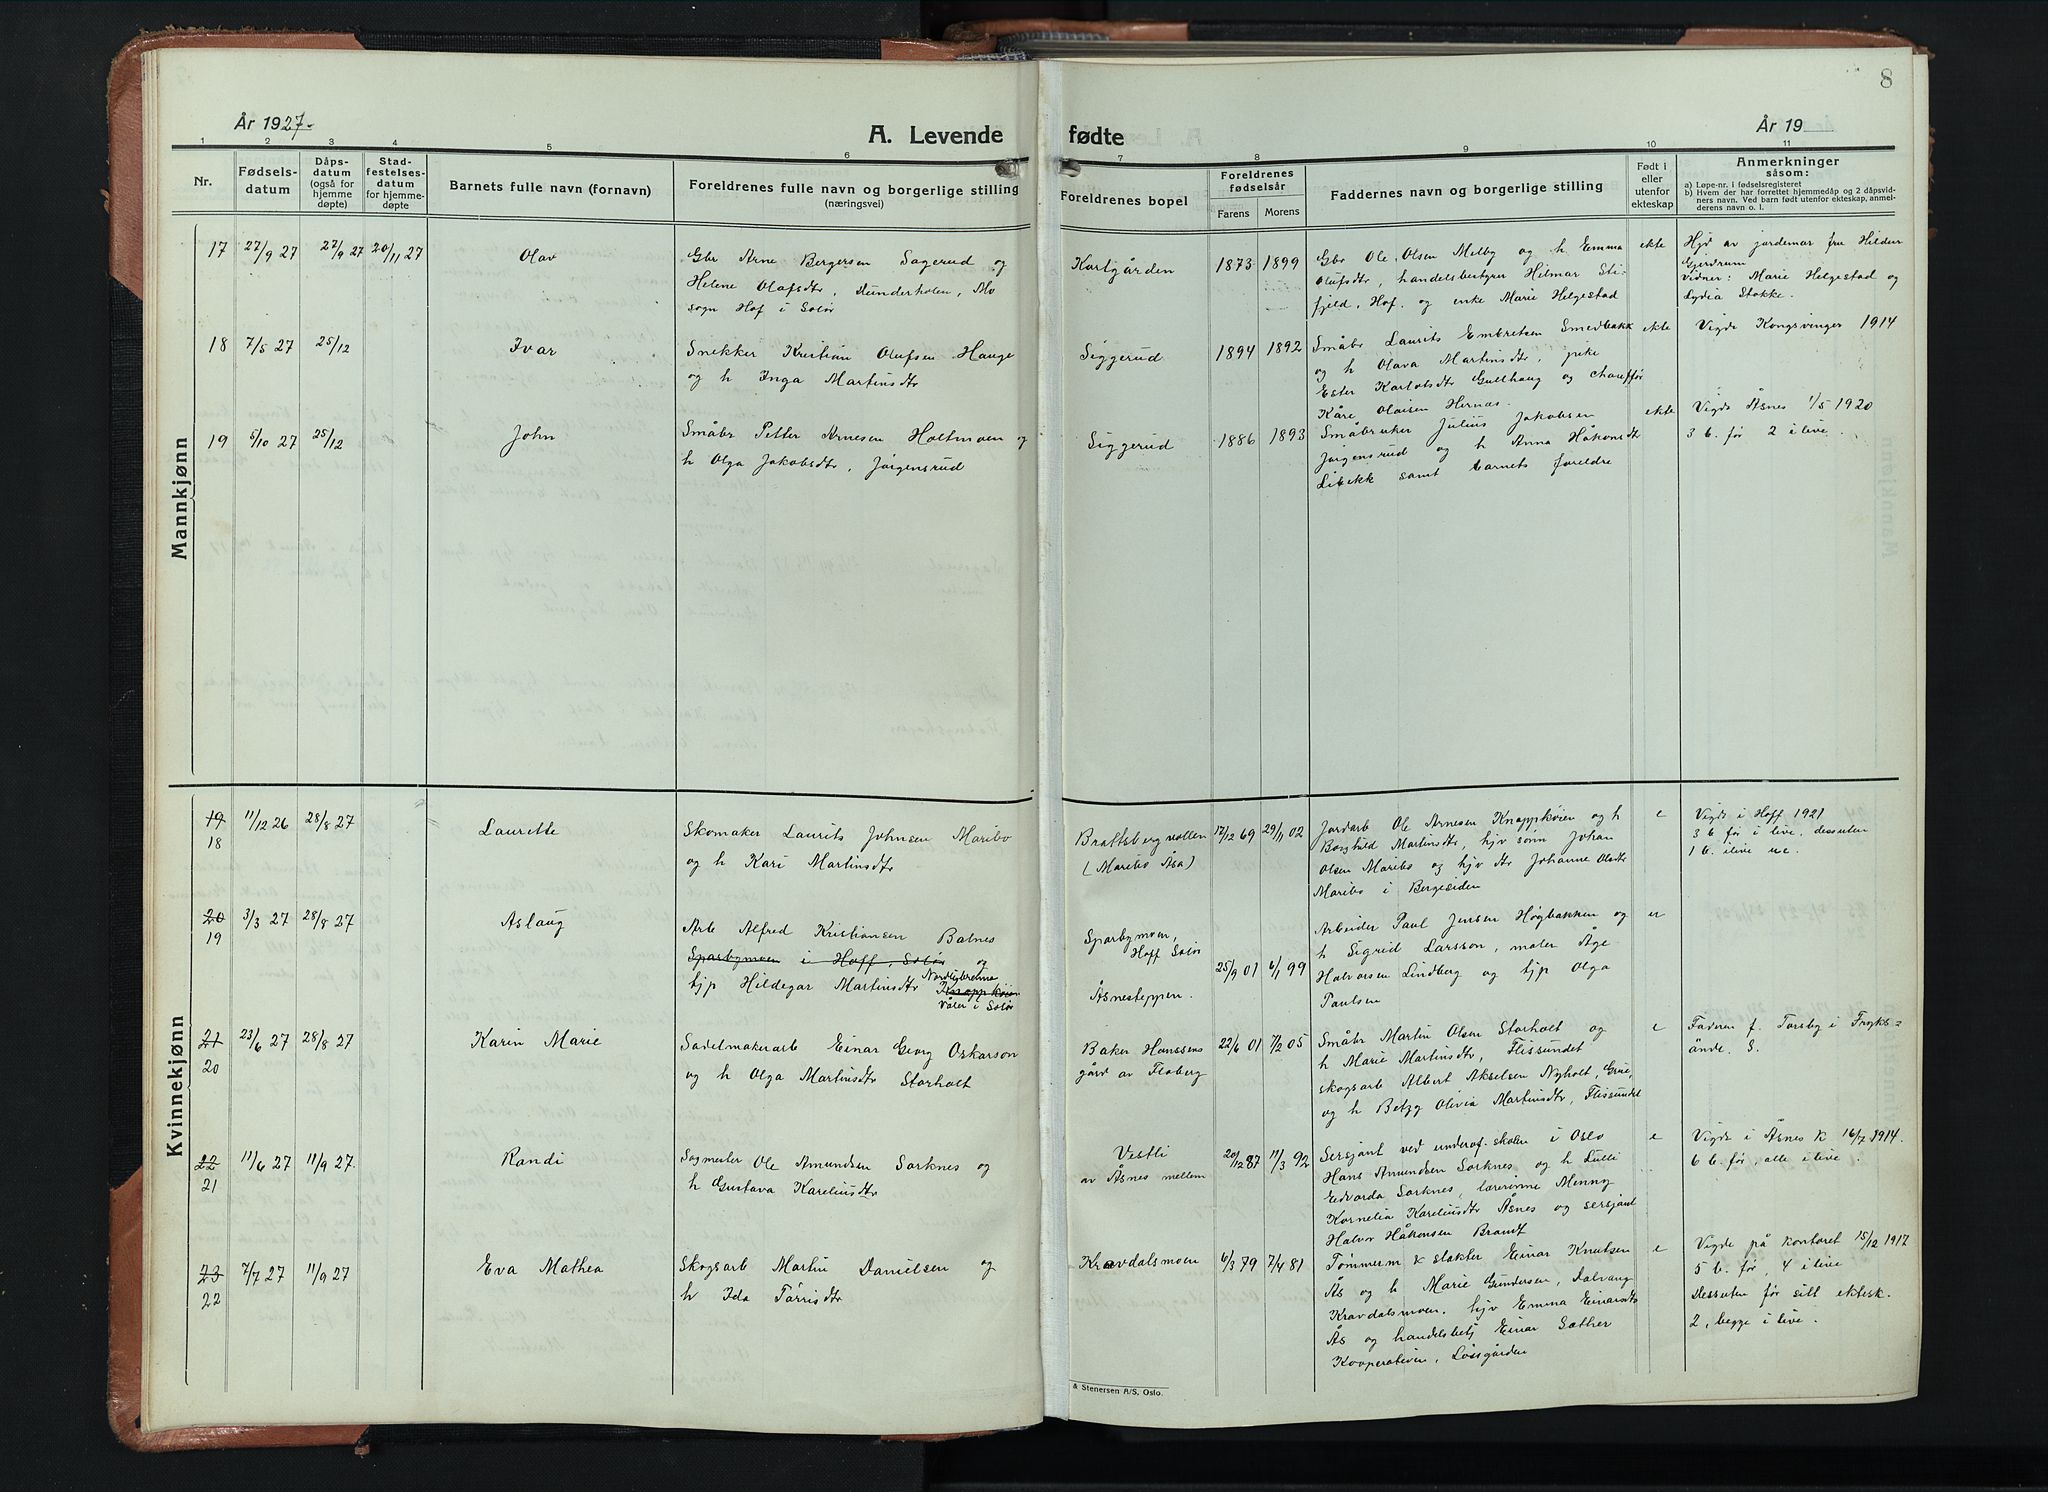 8
År 1927.
A. Levende fødte
År 19
1 2 3 4 5 6 7 8 9 10 11
Nr.
Fødsels-
datum
Dåps-
datum
(også for
hjemme
døpte)
Stad-
festelses-
datum
for hjemme-
døpte
Barnets fulle navn (fornavn)
Foreldrenes fulle navn og borgerlige stilling
(næringsvei)
Foreldrenes bopel
Foreldrenes
fødselsår
Farens Morens
Faddernes navn og borgerlige stilling
Født i
eller
utenfor
ekteskap
Anmerkninger
såsom:
a) Løpe-nr. i fødselsregisteret
b) Hvem der har forrettet hjemmedåp og 2 dåpsvid-
ners navn. Ved barn født utenfor ekteskap, anmel-
derens navn o. l.
Mannkjønn
17 27/9 27 27/9 27 20/11 27 Olav
Gbr Arne Bergersen Sagerud og
Helene Olafsdtr, Dunderholen, Mo
sogn Hof i Solør
Kartgården 1873 1899
Gbr Ole Olsen Melby og h Emma
Olufsdtr, handelsbestyrer Hilmar Sti-
fjeld, Hof, og enke Marie Helgestad
ekte
Hjd av jordemor fru Hildur
Gjerdrum
Vidner: Marie Helgestad og
Lydia Stokke.
18 7/5 27 25/12 Ivar
Snekker Kristian Olufsen Hauge
og h Inga Martinsdtr
Siggerud 1894 1892
Småbr Laurits Embretsen Smedbakk
og h Olava Martinsdtr, pike
Ester Karlotsdtr Gulthaug og chaufför
Kåre Olaisen Hernæs.
ekte
Vigde Kongsvinger 1914
19 5/10 27 25/12 John
Småbr Petter Arnesen Holtmoen og
h Olga Jakobsdtr, Jørgensrud
Siggerud 1886 1893
Småbruker Julius Jakobsen
Jørgensrud og h Anna Håkonsdtr
Libekk samt barnets foreldre
ekte
Vigde Åsnes 1/5 1920
3 b. før 2 ilive.
Kvinnekjønn
19
18
11/12 26 28/8 27 Laurette
Skomaker Laurits Johnsen Maribo
og h Kari Martinsdtr
Brattsbergvollen
(Maribo Åsa)
17/12 69 29/11 02
Jordarb Ole Arnesen Knappkøien og h
Borghild Martinsdtr, hjv sønn Johan
Olsen Maribo og hjv dtr Johanne Olsdtr
Maribo i Bergesiden
e
Vigde i Hoff 1921
3 b før i live, dessuten
1 b. ilive ue.
20
19
3/3 27 28/8 27 Aslaug
Arb Alfred Kristiansen Balnes
Sparbymoen i Hoff, Solør og
tjp Hildegar Martinsdtr Nordlybrenne
Knappkøien
Våler i Solør
Sparbymoen,
Hoff Solør
Åsnesteppen.
25/9 01 6/1 99
Arbeider Paul Jensen Høgbakken og
h Sigrid Larsson, maler Åge
Halvorsen Lindberg og tjp Olga
Paulsen
21
20
23/6 27 28/8 27 Karin Marie
Sadelmakerarb Einar Georg Oskarson
og h Olga Martinsdtr Storholt
Baker Hanssens
gård av Floberg
22/6 01 7/2 05
Småbr Martin Olsen Storholt og
h Marie Martinsdtr, Flissundet
skogsarb Albert Akselsen Nyholt, Grue,
og h Betzy Olivia Martinsdtr, Flissundet
e
Faderen f. Torsby i Fryks-
ände. S.
22
21
11/6 27 11/9 27. Randi
Sogmester Ole Amundsen Sorknes og
h Gustava Kareliusdtr
Vestli
av Åsnes mellem
20/12 87 11/3 92
Sersjant ved underof.skolen i Oslo
Hans Amundsen Sorknes og h Lulli
Edvarda Sorknes, lærerinne Minny
Kornelia Kareliusdtr Åsnes og sersjant
Halvor Håkonsen Brandt
e
Vigde i Åsnes k 16/7 1914.
6 b. før, alle i live.
23
22
7/7 27 11/9 27 Eva Mathea
Skogsarb Martin Danielsen og
h Ida Tørrisdtr
Kravdalsmoen 6/3 79 7/4 81
Tømmerm & slakter Einar Knutsen
Ås og h Marie Gundersen, Dalvang
Kravdalsmoen, hjv Emma Einarsdtr
Ås og handelsbetj Einar Sæther
Kooperativen, Løssgården
e
Vigde på kontoret 15/12 1917
5 b. før, 4 ilive
Dessuten før sitt ektesk.
2, begge i live.
& Stenersen A/S, Oslo.